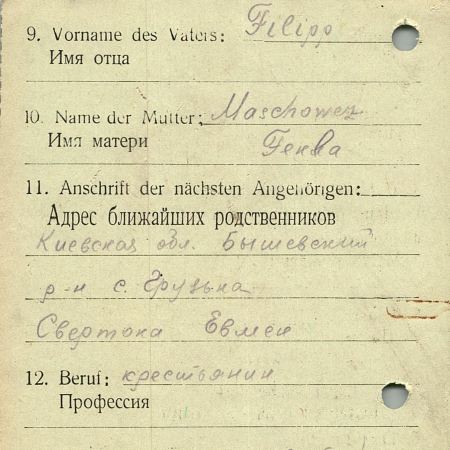 9. Vorname des Vaters: Filipp
Имя отца
10. Name der Mutter: Maschowez
Имя матери Fenka
11. Anschrift der nächsten Angehörigen:
Адрес ближайших родственников
Киевская обл. Бышевский
р-н с. Грузька
Свертока Евмен
12. Beruf: крестьянин
Профессия